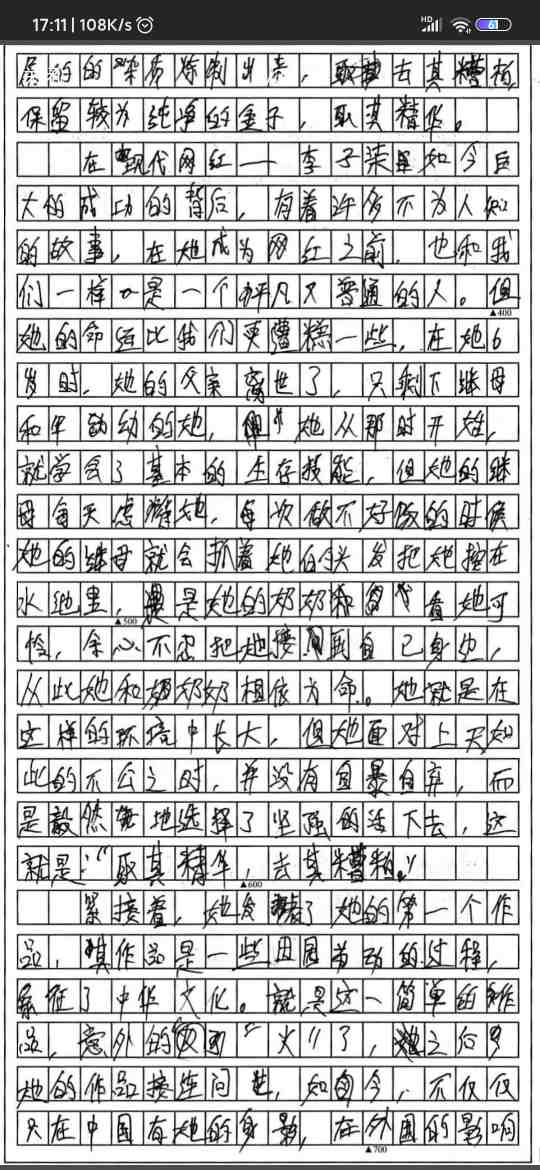 17:11 | 108K/s
HD
61
的的"杂质炼制出来,取其去其糟粕,
保留较为纯净的金子,取其精华。
在现代网红——李子柒如今巨
大的成功的背后,有着许多不为人知
的故事,在她成为网红之前,也和我
们一样是一个平凡又普通的人。但
▲400
她的命运比我们更遭糕一些,在她6
岁时,她的父亲离世了,只剩下继母
和年幼的她,她从那时开始,
就学会了基本的生存技能,但她的继
母每天虐待她,每次做不好饭的时候
她的继母就会抓着她的头发把她按在
水池里,是她的奶奶看她可
▲500
怜,余心不忍把她接到自己身边,
从此她和奶奶相依为命。她就是在
这样的环境中长大,但她面对上天如
此的不公之时,并没有自暴自弃,而
是毅然地选择了坚强的活下去,这
就是:"取其精华,去其糟粕。"
▲600
紧接着,她发表了她的第一个作
品,其作品是一些田园劳动的过程,
象征了中华文化。就是这一简单的作
品,意外的"火"了,之后
她的作品接连问世,如今,不仅仅
只在中国有她的身影,在外国的影响
▲700